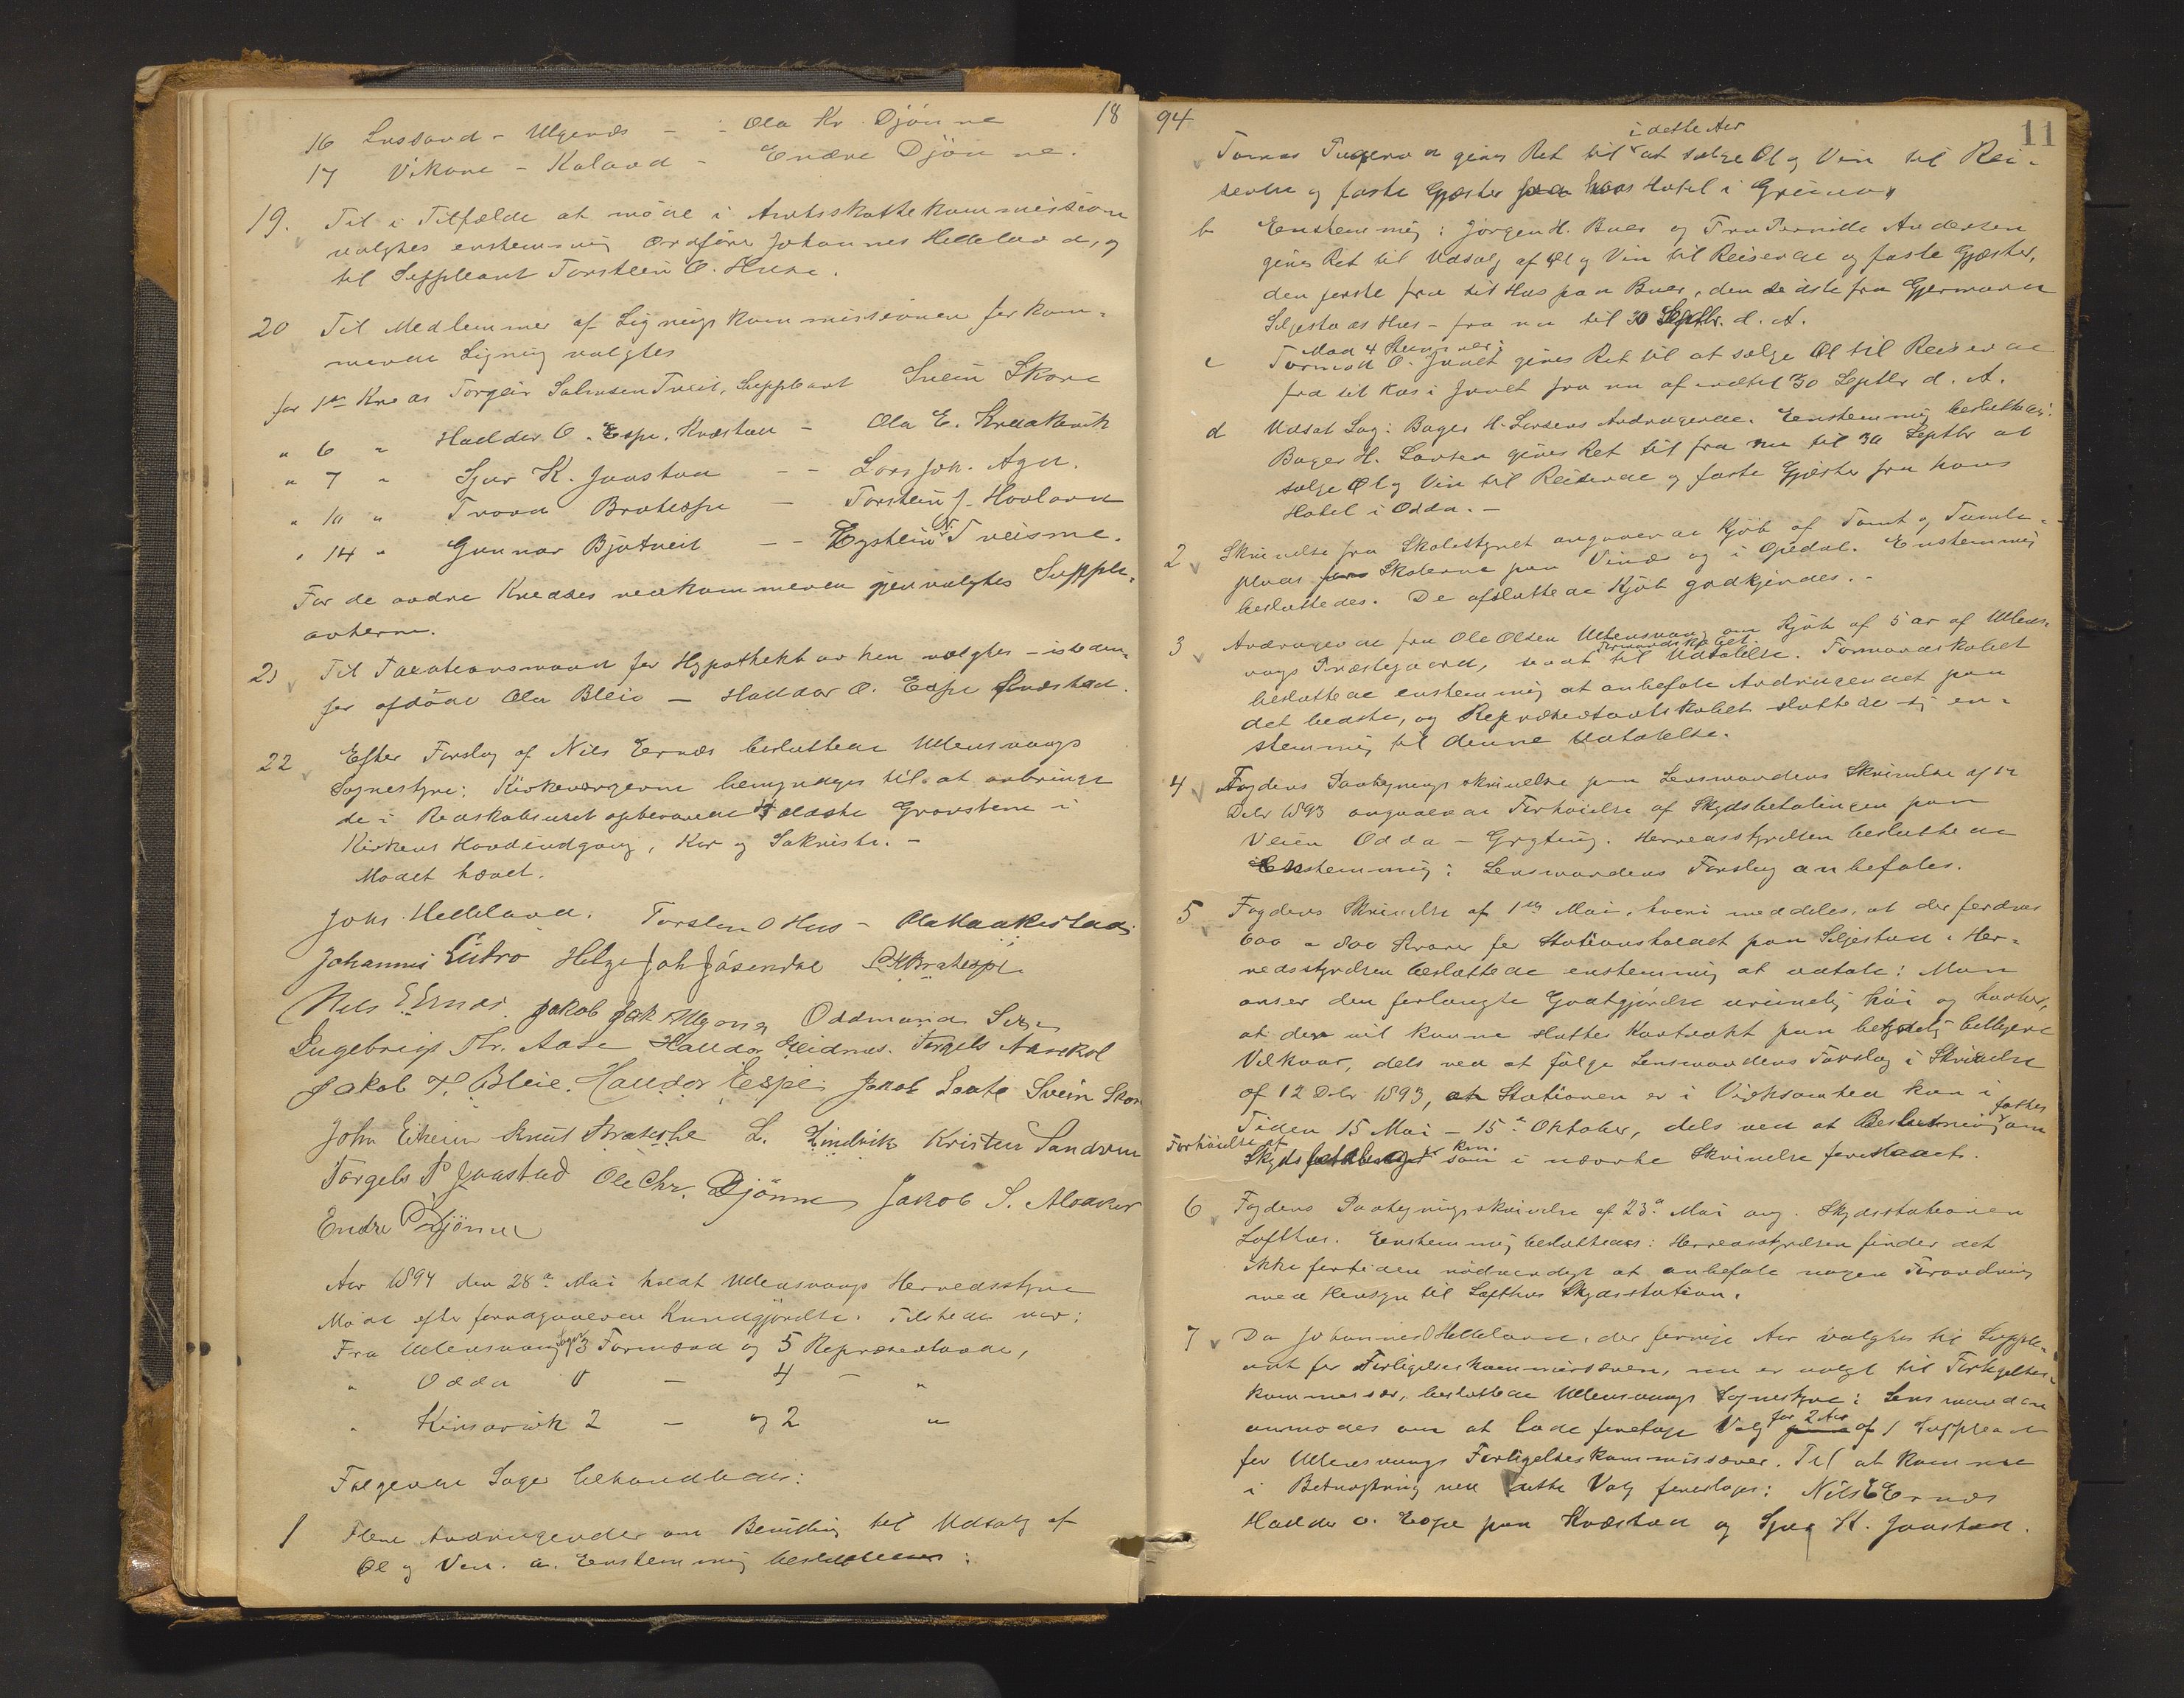 18
16 Lussand - Ulgenes - - Ola Kr. Djönne
17 Vikane - Koland - Endre Djönne.
19. Til i Tilfælde at möde i Amtsskattekommission
valgtes enstemmig Ordförer Johannes Helleland, og
til Suppleant Torstein O. Huse.
20 Til Medlemmer af Ligningskommissionen for kom-
mende Ligning valgtes
for 1ste Kreds Torgeir Salmsen Tveit, Suppleant Svein Skare
" 6 " Haldor O. Espe, Kvæstad - Ola E. Kraakevik
" 7 " Sjur K. Jaastad - - Lars Joh. Aga.
" 10 " Trond Bratespe - Torstein J. Hovland
" 14 " Gunnar Bjotveit - - Eystein N. Tveisme.
For de andre Kredses vedkommende gjenvalgtes Supple-
anterne.
21 Til Taxationsmand for Hypothekbanken valgtes - isteden-
for afdöde Ola Bleie - Haldor O. Espe Kvæstad.
22 Efter Forslag af Nils Ernæs besluttede Ullensvangs
Sognestyre: Kirkeværgerne bemyndiges til at anbringe
de i Redskabshuset opbevarede ældste Gravstene i
Kirkens Hovedindgang, Kor og Sakristi. -
Mödet hævet.
Johs. Helleland. Torstein O Hus - Ola Maakestad
Johannis Eitro Helge Joh Jåsendal
Nils E Ernæs. Jakob Jak Alsager Oddmund Sexe
Ingebrigt Th. Aase Haldor Eidnes. Torgels Aarekol
Jakob T. Bleie. Haldor Espe Jakob Lote Svein Skare
John Eitheim Knut Bratespe L. Lindvik Kristen Sandven
Torgels P Jaastad Ole Chr. Djönne Jakob S. Alsaker
Endre P Djönne
Aar 1894 den 28de Mai holdt Ullensvangs Herredsstyre
Möde efter forudgaaende Kundgjörelse. Tilstede var:
Fra Ullensvang Sogn 3 Formænd og 5 Repræsentanter,
" Odda 0 - 4 - "
" Kinsarvik 2 - og 2 "
Fölgende Sager behandledes:
1 Flere Andragender om Bevilling til Udsalg af
Öl og Vin. a. Enstemmig besluttedes:
94
11
i dette Aar
Tomas gives Ret til at sælge Öl og Vin til Rei-
sende og faste Gjæster fra hans Hotel i
b Enstemmig: Jörgen H. Buer og Fru Pernille Andersen
gives Ret til Udsalg af Öl og Vin til Reisende og faste Gjæster,
den förste fra sit Hus paa Buer, den sidste fra Gjermund
Seljestads Hus - fra nu til 30 Septbr. d. A.
Mod 4 Stemmer:
c Tormod O. Jordt gives Ret til at sælge Öl til Reisende
fra sit Hus i Jordt fra nu af indtil 30 Septbr d. A.
d Udsat Sag: Bager H. Larsens Andragende. Eenstemmig besluttedes:
Bager H. Larsen gives Ret til fra nu til 30 Septbr at
sælge Öl og Vin til Reisende og faste Gjæster fra hans
Hotel i Odda. -
2 Skrivelse fra Skolestyret angaaende Kjöb af Tomt og Tumle-
plads for Skolerne paa Vines og i Opedal. Enstemmig
besluttedes: De afsluttede Kjöb godkjendes. -
3 Andragende fra Ole Olsen Ullensvang om Kjöb af 5 ar af Ullens-
vangs Præstegaard, sendt til Formandskabet Udtalelse. Formandskabet
besluttede enstemmig at anbefale Andragendet paa
det bedste, og Repræsentantskabet sluttede sig en-
stemmig til denne Udtalelse.
4 Fogdens Paategningsskrivelse paa Lensmandens Skrivelse af 12
Debr 1893 angaaende Forhöielse af Skydsbetalingen paa
Veien Odda - Grytting. Herredsstyrelsen besluttede
Enstemmig: Lensmandens Forslag anbefales.
5 Fogdens Skrivelse af 1ste Mai, hvori meddeles, at der fordres
600 a 800 Kroner for Stationsholdet paa Seljestad. Her-
redsstyrelsen besluttede enstemmig at udtale: Man
anser den forlangte Godtgjörelse urimelig höi og haaber,
at der vil kunne sluttes Kontrakt paa betydelig billigere
Vilkaar, dels ved at fölge Lensmandens Forslag i Skrivelse
af 12 Debr 1893, at Stationen er i Virksomhed kun i
Tiden 15 Mai - 15de Oktober, dels ved at Beslutning fattes om
Forhöielse af Skydsbetalinger km. som i nævnte Skrivelse foreslaaet.
6 Fogdens Paategningsskrivelse af 23de Mai ang. Skydsstationen
Lofthus. Eenstemmig besluttedes: Herredsstyrelsen finder det
ikke fortiden nödvendigt at anbefale nogen Forandring
med Hensyn til Lofthus Skydsstation.
7 Da Johannes Helleland, der forrige Aar valgtes til Supple-
ant for Forligelseskommissæren, nu er valgt til Forligelses-
kommissær, besluttede Ullensvangs Sognestyre: Lensmanden
anmodes om at lade foretage Valg for 2 Aar af 1 Suppleant
for Ullensvangs Forligelseskommissærer. Til at komme
i Betragtning ved dette Valg foreslages: Nils E Ernæs
Haldor O. Espe paa Kvæstad og Sjur K. Jaastad.